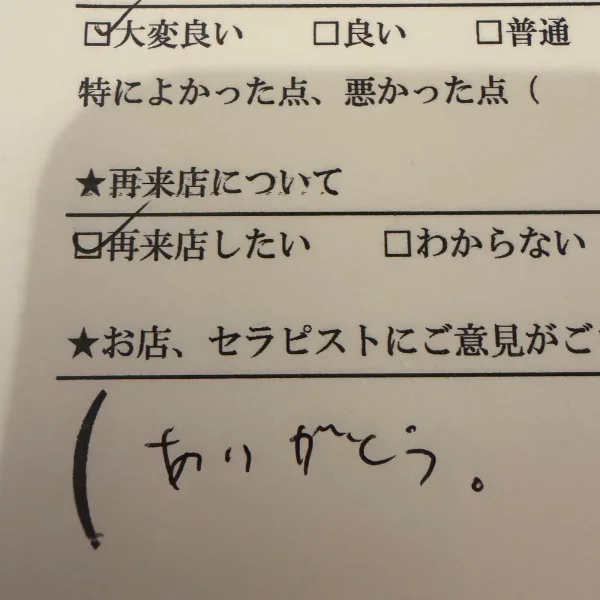 ☑大変良い □良い □普通
特によかった点、悪かった点（
★再来店について
☑再来店したい □わからない
★お店、セラピストにご意見がご
（ありがとう。